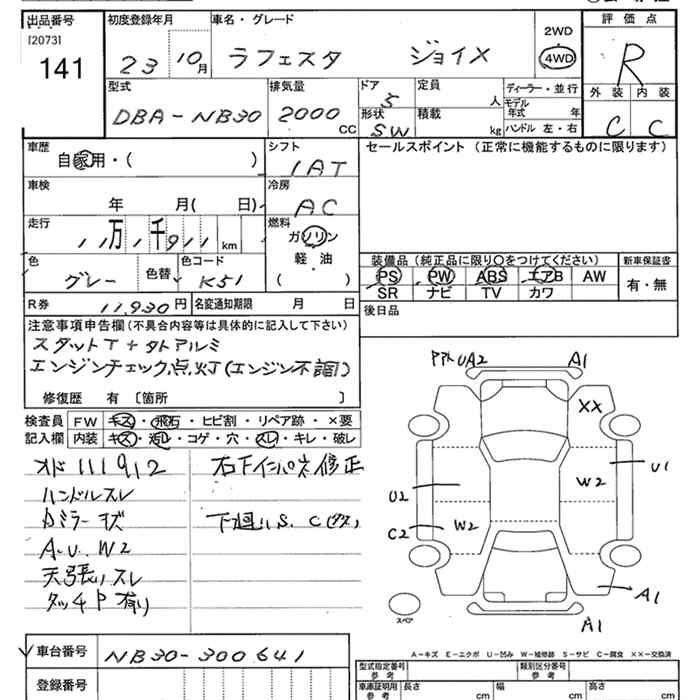 出品番号
[2073]
141
初度登録年月
23 10月
車名・グレード
ラフェスタ ジョイX
2WD
4WD
評価点
R
外装 内装
C C
型式
DBA-NB30
排気量
2000 CC
ドア
5
形状
SW
定員
人
積載
kg
ディーラー・並行
モデル年式 年
ハンドル 左・右
車歴
自家用・( )
シフト
IAT
セールスポイント (正常に機能するものに限ります)
車検
年 月( 日)
冷房
AC
走行
11万1千911 km
燃料
ガソリン
軽・油
( )
色
グレー
色替
色コード
K51
装備品 (純正品に限り○をつけてください)
PS PW ABS エアB AW
SR ナビ TV カワ
新車保証書
有・無
R券 11,930円
名変通知期限 月 日
後日品
注意事項申告欄(不具合内容等は具体的に記入して下さい)
スタットT+タトアルミ
エンジンチェック点灯(エンジン不調)
修復歴 有 〔箇所 〕
検査員記入欄
FW キズ・飛石・ヒビ割・リペア跡・×要
内装 キズ・汚レ・コゲ・穴・スレ・キレ・破レ
オド111912
ハンドルスレ
A.U. W2
天張リスレ
タッチP有り
右下インパネ修正
下廻りS.C(タタ)
UA2
A1
XX
U1
W2
U2
C2
W2
A1
A1
スペア
A-キズ E-エクボ U-凹み W-補修跡 S-サビ C-腐食 ××-交換済
車台番号
NB30-300641
登録番号
型式指定番号
参考
類別区分番号
参考
車庫証明用
参考
長さ cm
幅 cm
高さ cm